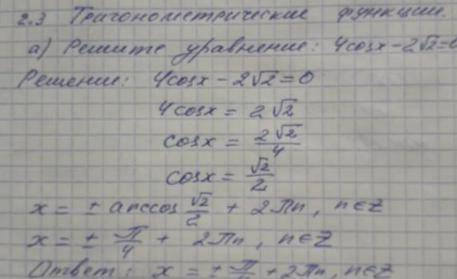 2.3 Тригонометрические функции.
а) Решите уравнение: 4cosx-2√2=0
Решение: 4cosx-2√2=0
4cosx = 2√2
cosx = 2√2/4
cosx = √2/2
x = ± arccos √2/2 + 2πn, n∈Z
x = ± π/4 + 2πn, n∈Z
Ответ: x = ± π/4 + 2πn, n∈Z